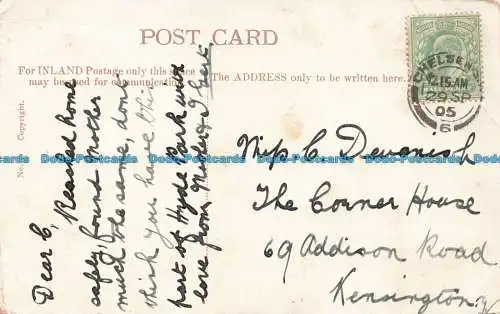 POST CARD
For INLAND Postage only this space
may be used for communication.
The ADDRESS only to be written here.
Copyright.
No.
CHELSEA
.15.AM
29 SP
05
6
Dear C, Reached home
safely, found mother
much the same, don't
which you have this
part of Hyde Park with
love from
Miss C Devenish
The Corner House
69 Addison Road
Kensington
Dodo-Postcards Dodo-Postcards Dodo-Postcards Dodo-Postcards